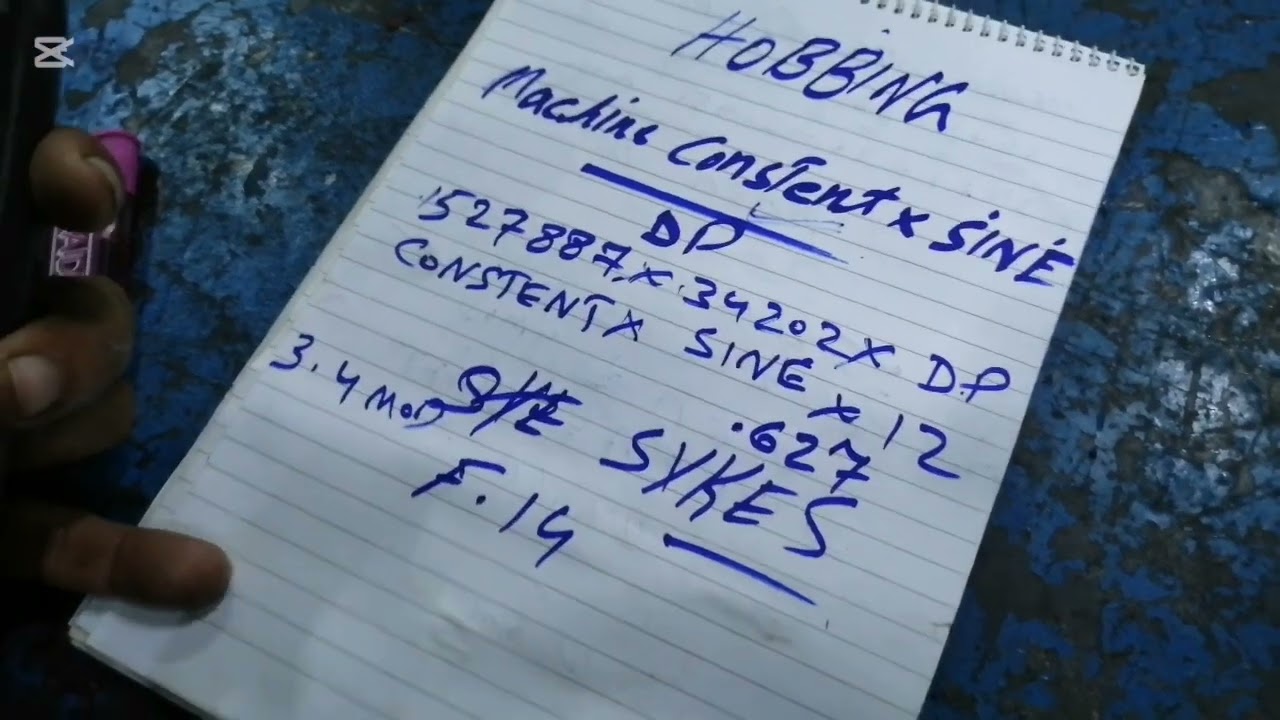 HOBBING
Machine Constent x SINE
DP
.527887 x .34202 x DP
CONSTENT x SINE x 12
.627
3.4 MOD
SYKES
F.14